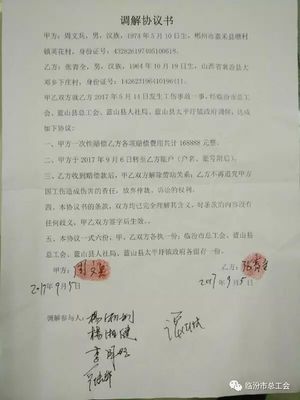 调解协议书
甲方：周文兵，男，汉族，1973年5月10日生，郴州市嘉禾县塘村
镇英花村，身份证号：
乙方：张青全，男，汉族，1964年10月19日生，山西省襄汾县大
邓乡下庄村，身份证号：
甲乙双方就乙方2017年5月14日发生工伤事故一事，经临汾市总工
会、蓝山县总工会、蓝山县人社局、蓝山县太平圩镇政府调解，达成
如下协议：
一、甲方一次性赔偿乙方各项赔偿费用共计168888元整。
二、甲方于2017年9月6日转至乙方账户（户名、账号附后）。
三、乙方收到赔偿款后，甲乙双方解除劳动关系；乙方不再追究甲方
因工伤造成伤害的责任，放弃仲裁、诉讼的权利。
四、本协议书的条款，双方均已完全理解其含义，对条款的内容没有
任何歧义，甲乙双方签字后生效。
五、本协议一式六份，甲、乙双方各执一份；临汾市总工会、蓝山县
总工会、蓝山县人社局、蓝山县太平圩镇政府各留存一份。
甲方：周文兵
乙方：张青全
2017年9月5日
2017年9月5日
调解参与人：
临汾市总工会